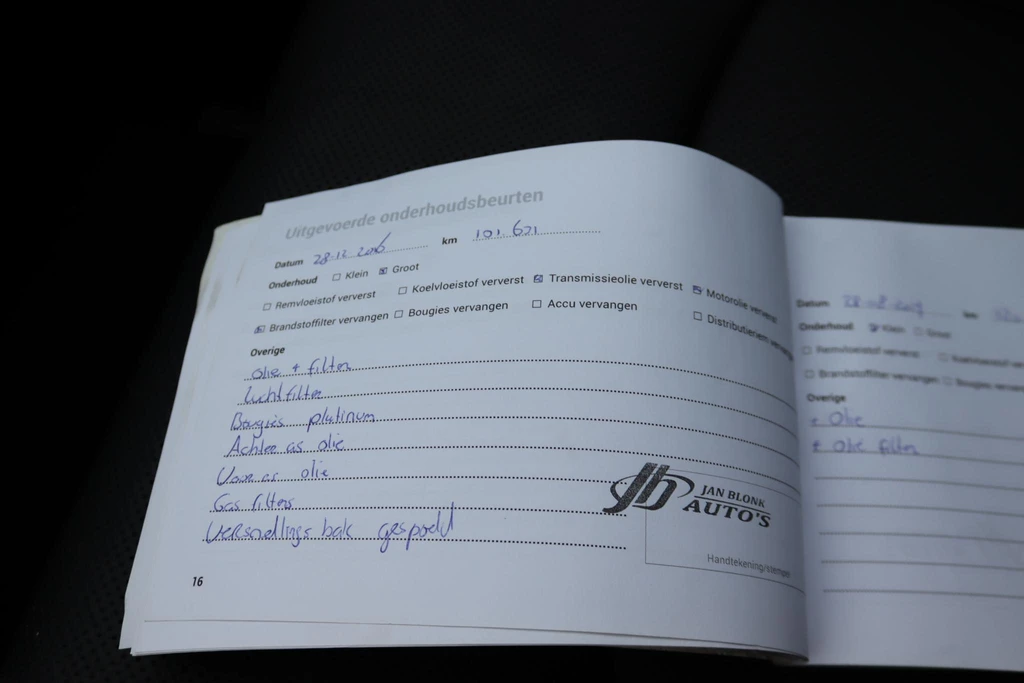 Uitgevoerde onderhoudsbeurten
Datum 28-12 2016 km 101.671
Onderhoud ☐ Klein ☒ Groot
☐ Remvloeistof ververst ☐ Koelvloeistof ververst ☒ Transmissieolie ververst ☒ Motorolie ververst
☒ Brandstoffilter vervangen ☐ Bougies vervangen ☐ Accu vervangen ☐ Distributieriem
Overige
olie + filter
Luchtfilter
Bougies platinum
Achter as olie
Voor as olie
Gas filters
Versnellings bak gespoeld
JAN BLONK
AUTO'S
Handtekening/stempel
16
Datum
km
Onderhoud ☒ Klein ☐ Groot
☐ Remvloeistof ververst
☐ Brandstoffilter vervangen ☐ Bougies
Overige
+ Olie
+ Olie filter